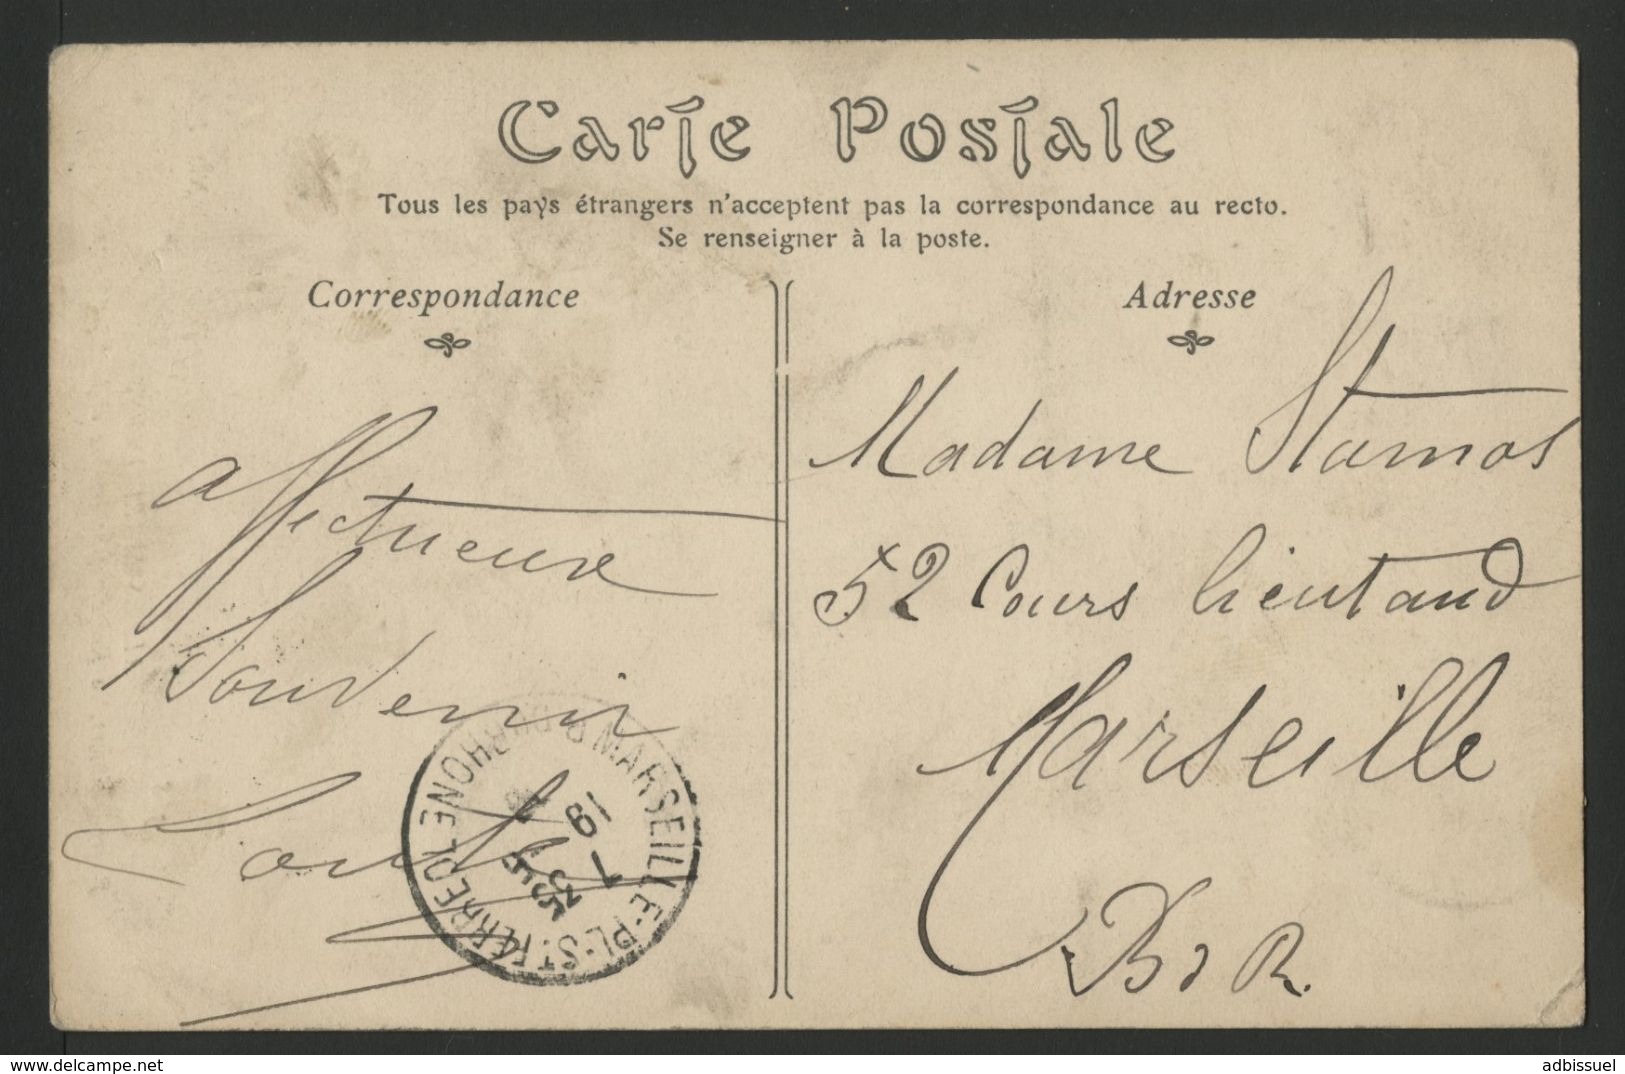 Carte Postale
Tous les pays étrangers n'acceptent pas la correspondance au recto.
Se renseigner à la poste.
Correspondance
Adresse
affectueux
Souvenir
Madame Stamos
52 Cours lieutaud
Marseille
B d R.
MARSEILLE-PL-ST FERREOL
19
7
delcampe.net
adbissuel